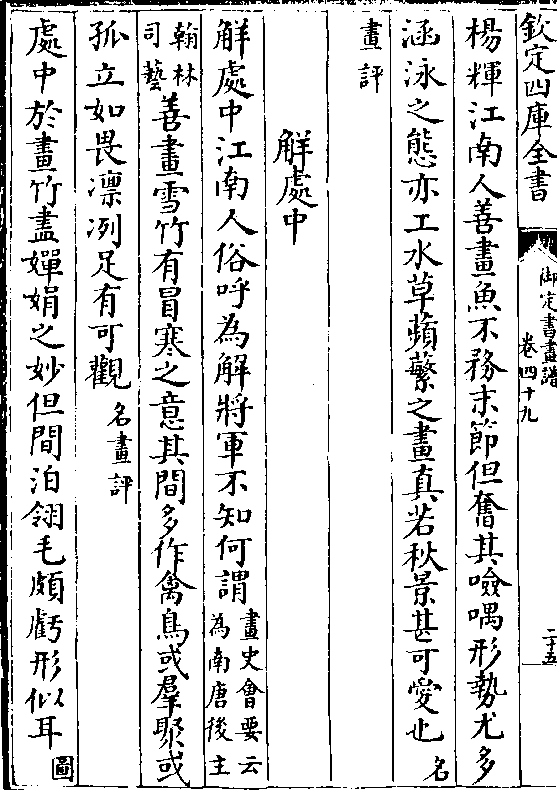 欽定四庫全書
御定書畫譜
卷四十九
二十五
楊輝江南人善畫魚不務末節但奮其噞喁形勢尤多
涵泳之態亦工水草蘋蘩之畫真若秋景甚可愛也名
畫評
解處中
解處中江南人俗呼為解將軍不知何謂畫史會要云
為南唐後主
翰林
司藝善畫雪竹有冒寒之意其間多作禽鳥或羣聚或
孤立如畏凛冽足有可觀名畫評
處中於畫竹盡嬋娟之妙但間泊翎毛頗虧形似耳圖